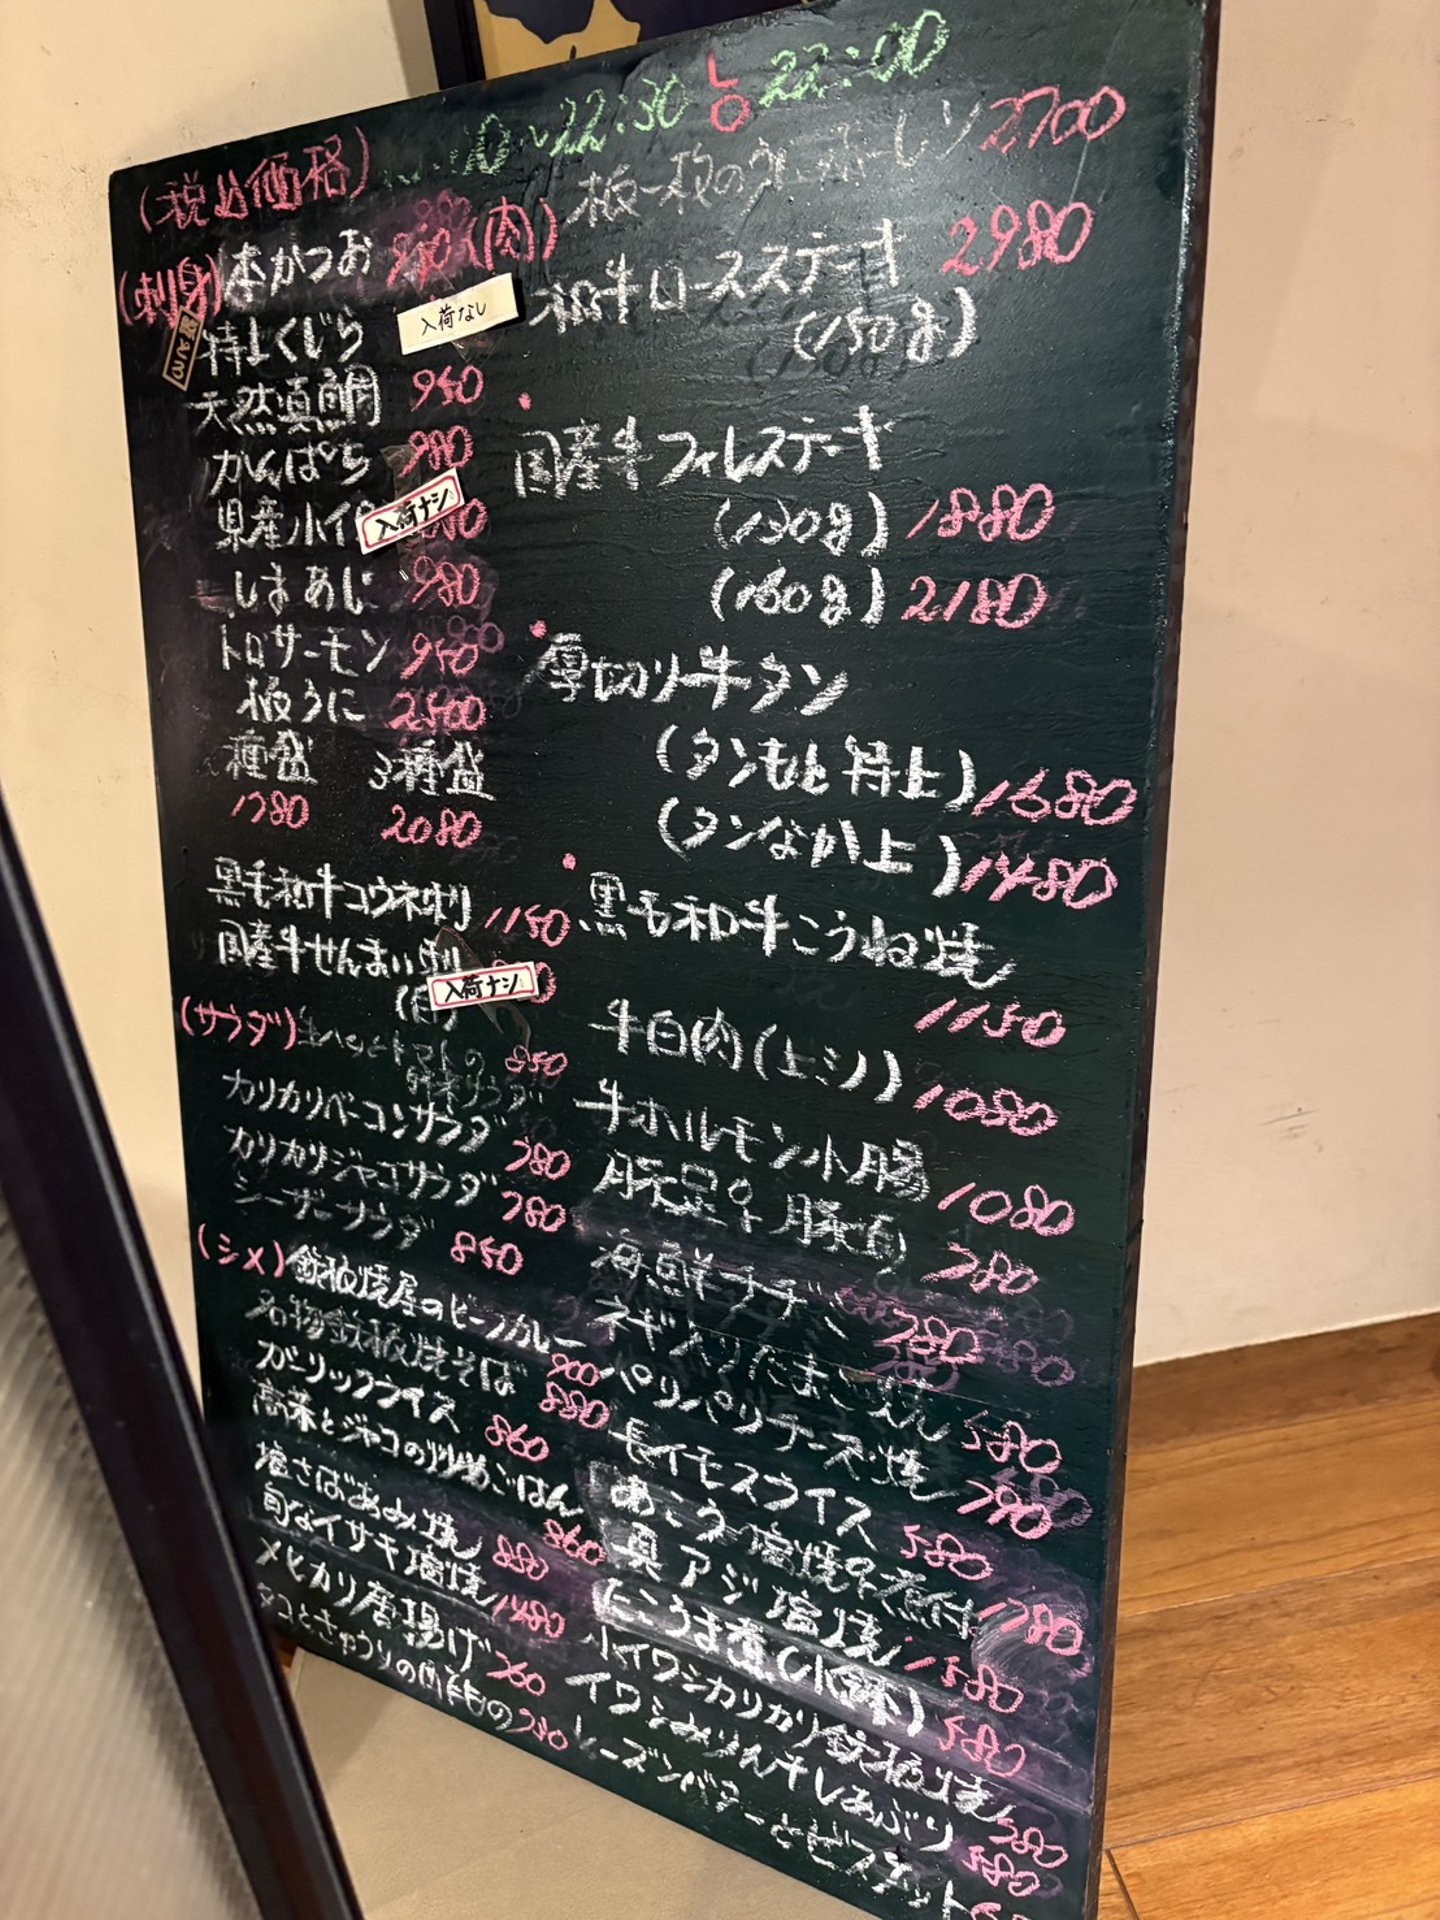 22:30 LO 22:00
(税込価格)
(刺身)
本かつお
特上くじら 入荷なし
天然真鯛 950
かんぱち 980
県産小イ 入荷ナシ
しまあじ 980
トロサーモン 950
板うに 2500
種盛 3種盛
1780 2080
黒毛和牛コウネ刺 1150
国産牛せんまい刺 入荷ナシ
(サラダ)
850
カリカリベーコンサラダ 780
カリカリジャコサラダ 780
シーザーサラダ 850
(シメ)
鉄板焼屋のビーフカレー 900
名物鉄板焼そば 880
ガーリックライス 860
高菜とジャコの炒めごはん 860
塩さばあみ焼 880
旬なイサキ塩焼 1480
メヒカリ唐揚げ 760
タコときゅうりの 780
(肉)
板一枚のウ 2700
和牛ロースステーキ 2980
(150g)
国産牛フィレステーキ
(130g) 1880
(160g) 2180
厚切り牛タン
(タンもと特上) 1680
(タンなか上) 1480
黒毛和牛こうね焼
1150
牛白肉(上ミノ) 1080
牛ホルモン小腸 1080
豚足or豚 780
海鮮チヂミ 780
ネギ入りたまご焼 580
パリパリチーズ焼 790
長イモスライス 580
あこう塩焼or煮付 1780
真アジ塩焼 1580
たこうま煮(小鉢) 580
小イワシカリカリ鉄板焼 580
イワシみりん干しあぶり 580
レーズンバターとビスケット